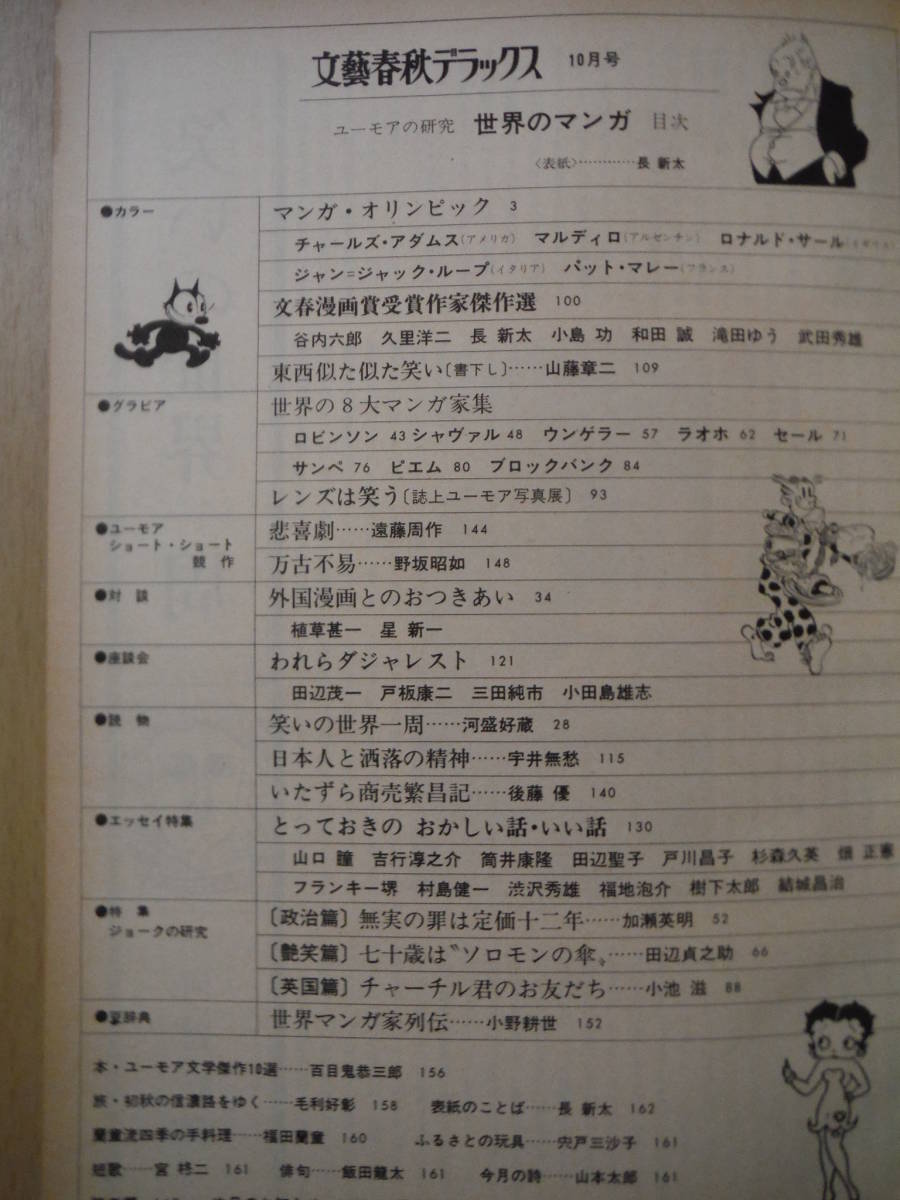 文藝春秋デラックス 10月号
ユーモアの研究 世界のマンガ 目次
〈表紙〉…………長 新太
●カラー
マンガ・オリンピック 3
チャールズ・アダムス(アメリカ) マルディロ(アルゼンチン) ロナルド・サール(イギリス)
ジャン=ジャック・ループ(イタリア) パット・マレー(フランス)
文春漫画賞受賞作家傑作選 100
谷内六郎 久里洋二 長 新太 小島 功 和田 誠 滝田ゆう 武田秀雄
東西似た似た笑い〔書下し〕……山藤章二 109
●グラビア
世界の8大マンガ家集
ロビンソン 43 シャヴァル 48 ウンゲラー 57 ラオホ 62 セール 71
サンペ 76 ピエム 80 ブロックバンク 84
レンズは笑う〔誌上ユーモア写真展〕 93
●ユーモア
ショート・ショート
競作
悲喜劇……遠藤周作 144
万古不易……野坂昭如 148
●対談
外国漫画とのおつきあい 34
植草甚一 星 新一
●座談会
われらダジャレスト 121
田辺茂一 戸板康二 三田純市 小田島雄志
●読物
笑いの世界一周……河盛好蔵 28
日本人と洒落の精神……宇井無愁 115
いたずら商売繁昌記……後藤 優 140
●エッセイ特集
とっておきの おかしい話・いい話 130
山口 瞳 吉行淳之介 筒井康隆 田辺聖子 戸川昌子 杉森久英 畑 正憲
フランキー堺 村島健一 渋沢秀雄 福地泡介 樹下太郎 結城昌治
●特集
ジョークの研究
〔政治篇〕無実の罪は定価十二年……加瀬英明 52
〔艶笑篇〕七十歳は〝ソロモンの傘〟……田辺貞之助 66
〔英国篇〕チャーチル君のお友だち……小池 滋 88
●豆辞典
世界マンガ家列伝……小野耕世 152
本・ユーモア文学傑作10選……百目鬼恭三郎 156
旅・初秋の信濃路をゆく……毛利好彰 158 表紙のことば……長 新太 162
蘭童流四季の手料理……福田蘭童 160 ふるさとの玩具……宍戸三沙子 161
短歌……宮 柊二 161 俳句……飯田龍太 161 今月の詩……山本太郎 161